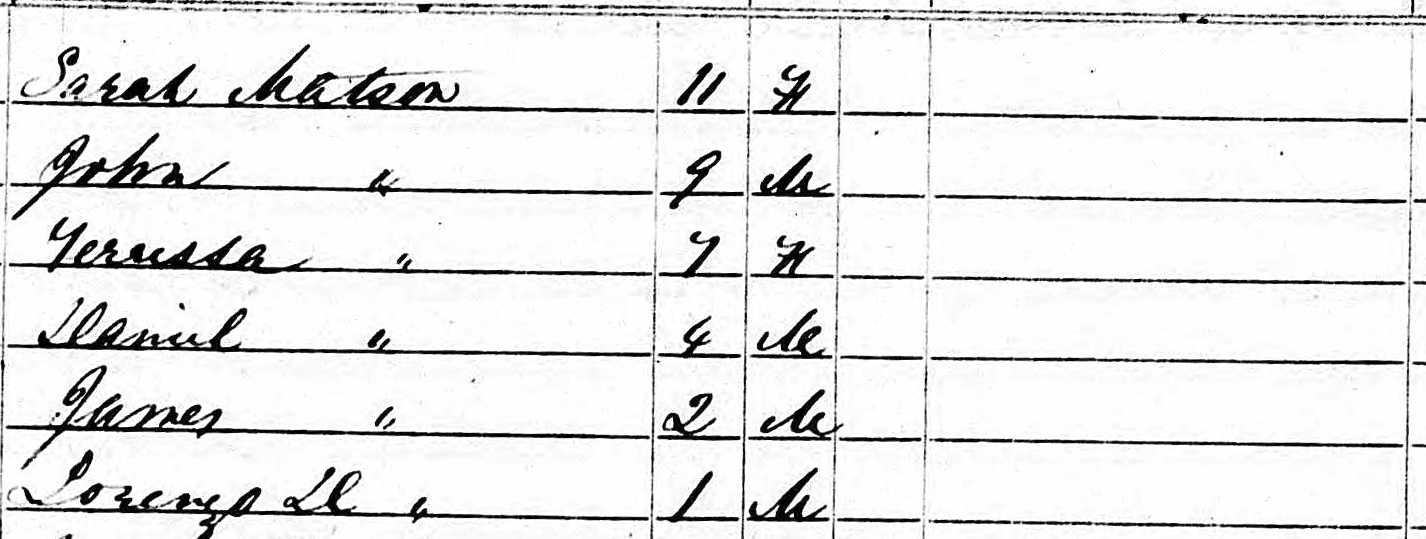 Sarah Matson 11 F
John " 9 M
Terussa " 7 F
Daniel " 4 M
James " 2 M
Lorenzo D " 1 M